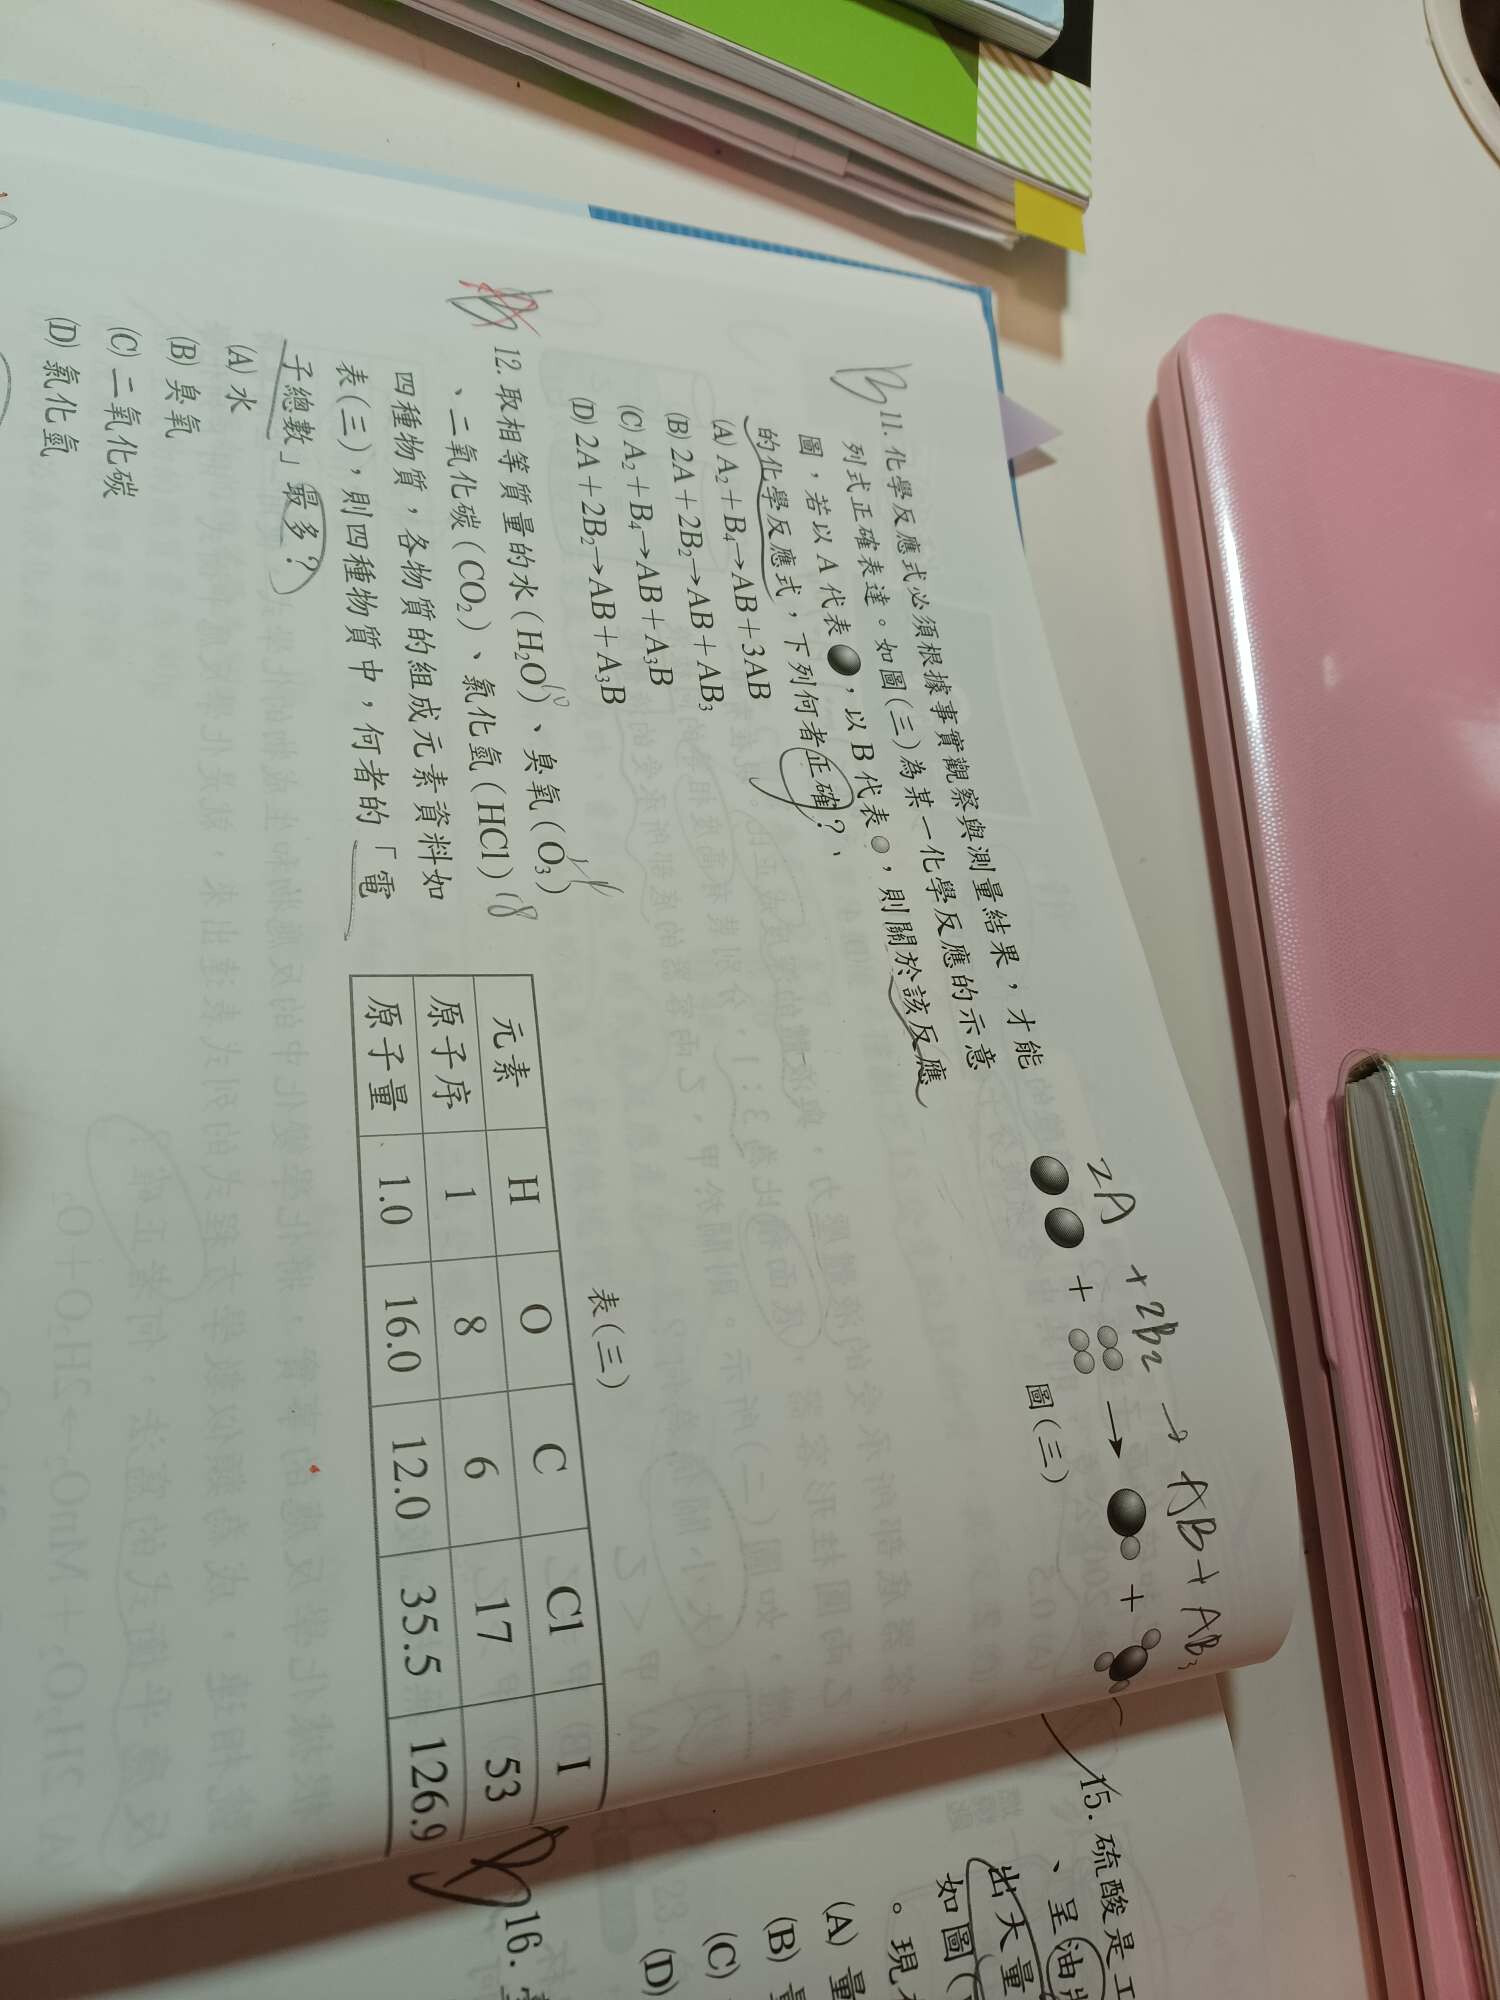 11. 化學反應式必須根據事實觀察與測量結果，才能
列式正確表達。如圖(三)為某一化學反應的示意
圖，若以 A 代表 ，以 B 代表 ，則關於該反應
的化學反應式，下列何者正確？
(A) A₂＋B₄→AB＋3AB
(B) 2A＋2B₂→AB＋AB₃
(C) A₂＋B₄→AB＋A₃B
(D) 2A＋2B₂→AB＋A₃B
2A + 2B₂ → AB + AB₃
＋ → ＋
圖(三)
12. 取相等質量的水（H₂O）、臭氧（O₃）
、二氧化碳（CO₂）、氯化氫（HCl）
四種物質，各物質的組成元素資料如
表(三)，則四種物質中，何者的「電
子總數」最多？
(A) 水
(B) 臭氧
(C) 二氧化碳
(D) 氯化氫
10
18
表(三)
元素 H O C Cl I
原子序 1 8 6 17 53
原子量 1.0 16.0 12.0 35.5 126.9
15. 硫酸是工
、呈油
出大量
如圖(
。現
(A) 量
(B) 量
(C)
(D)
16.